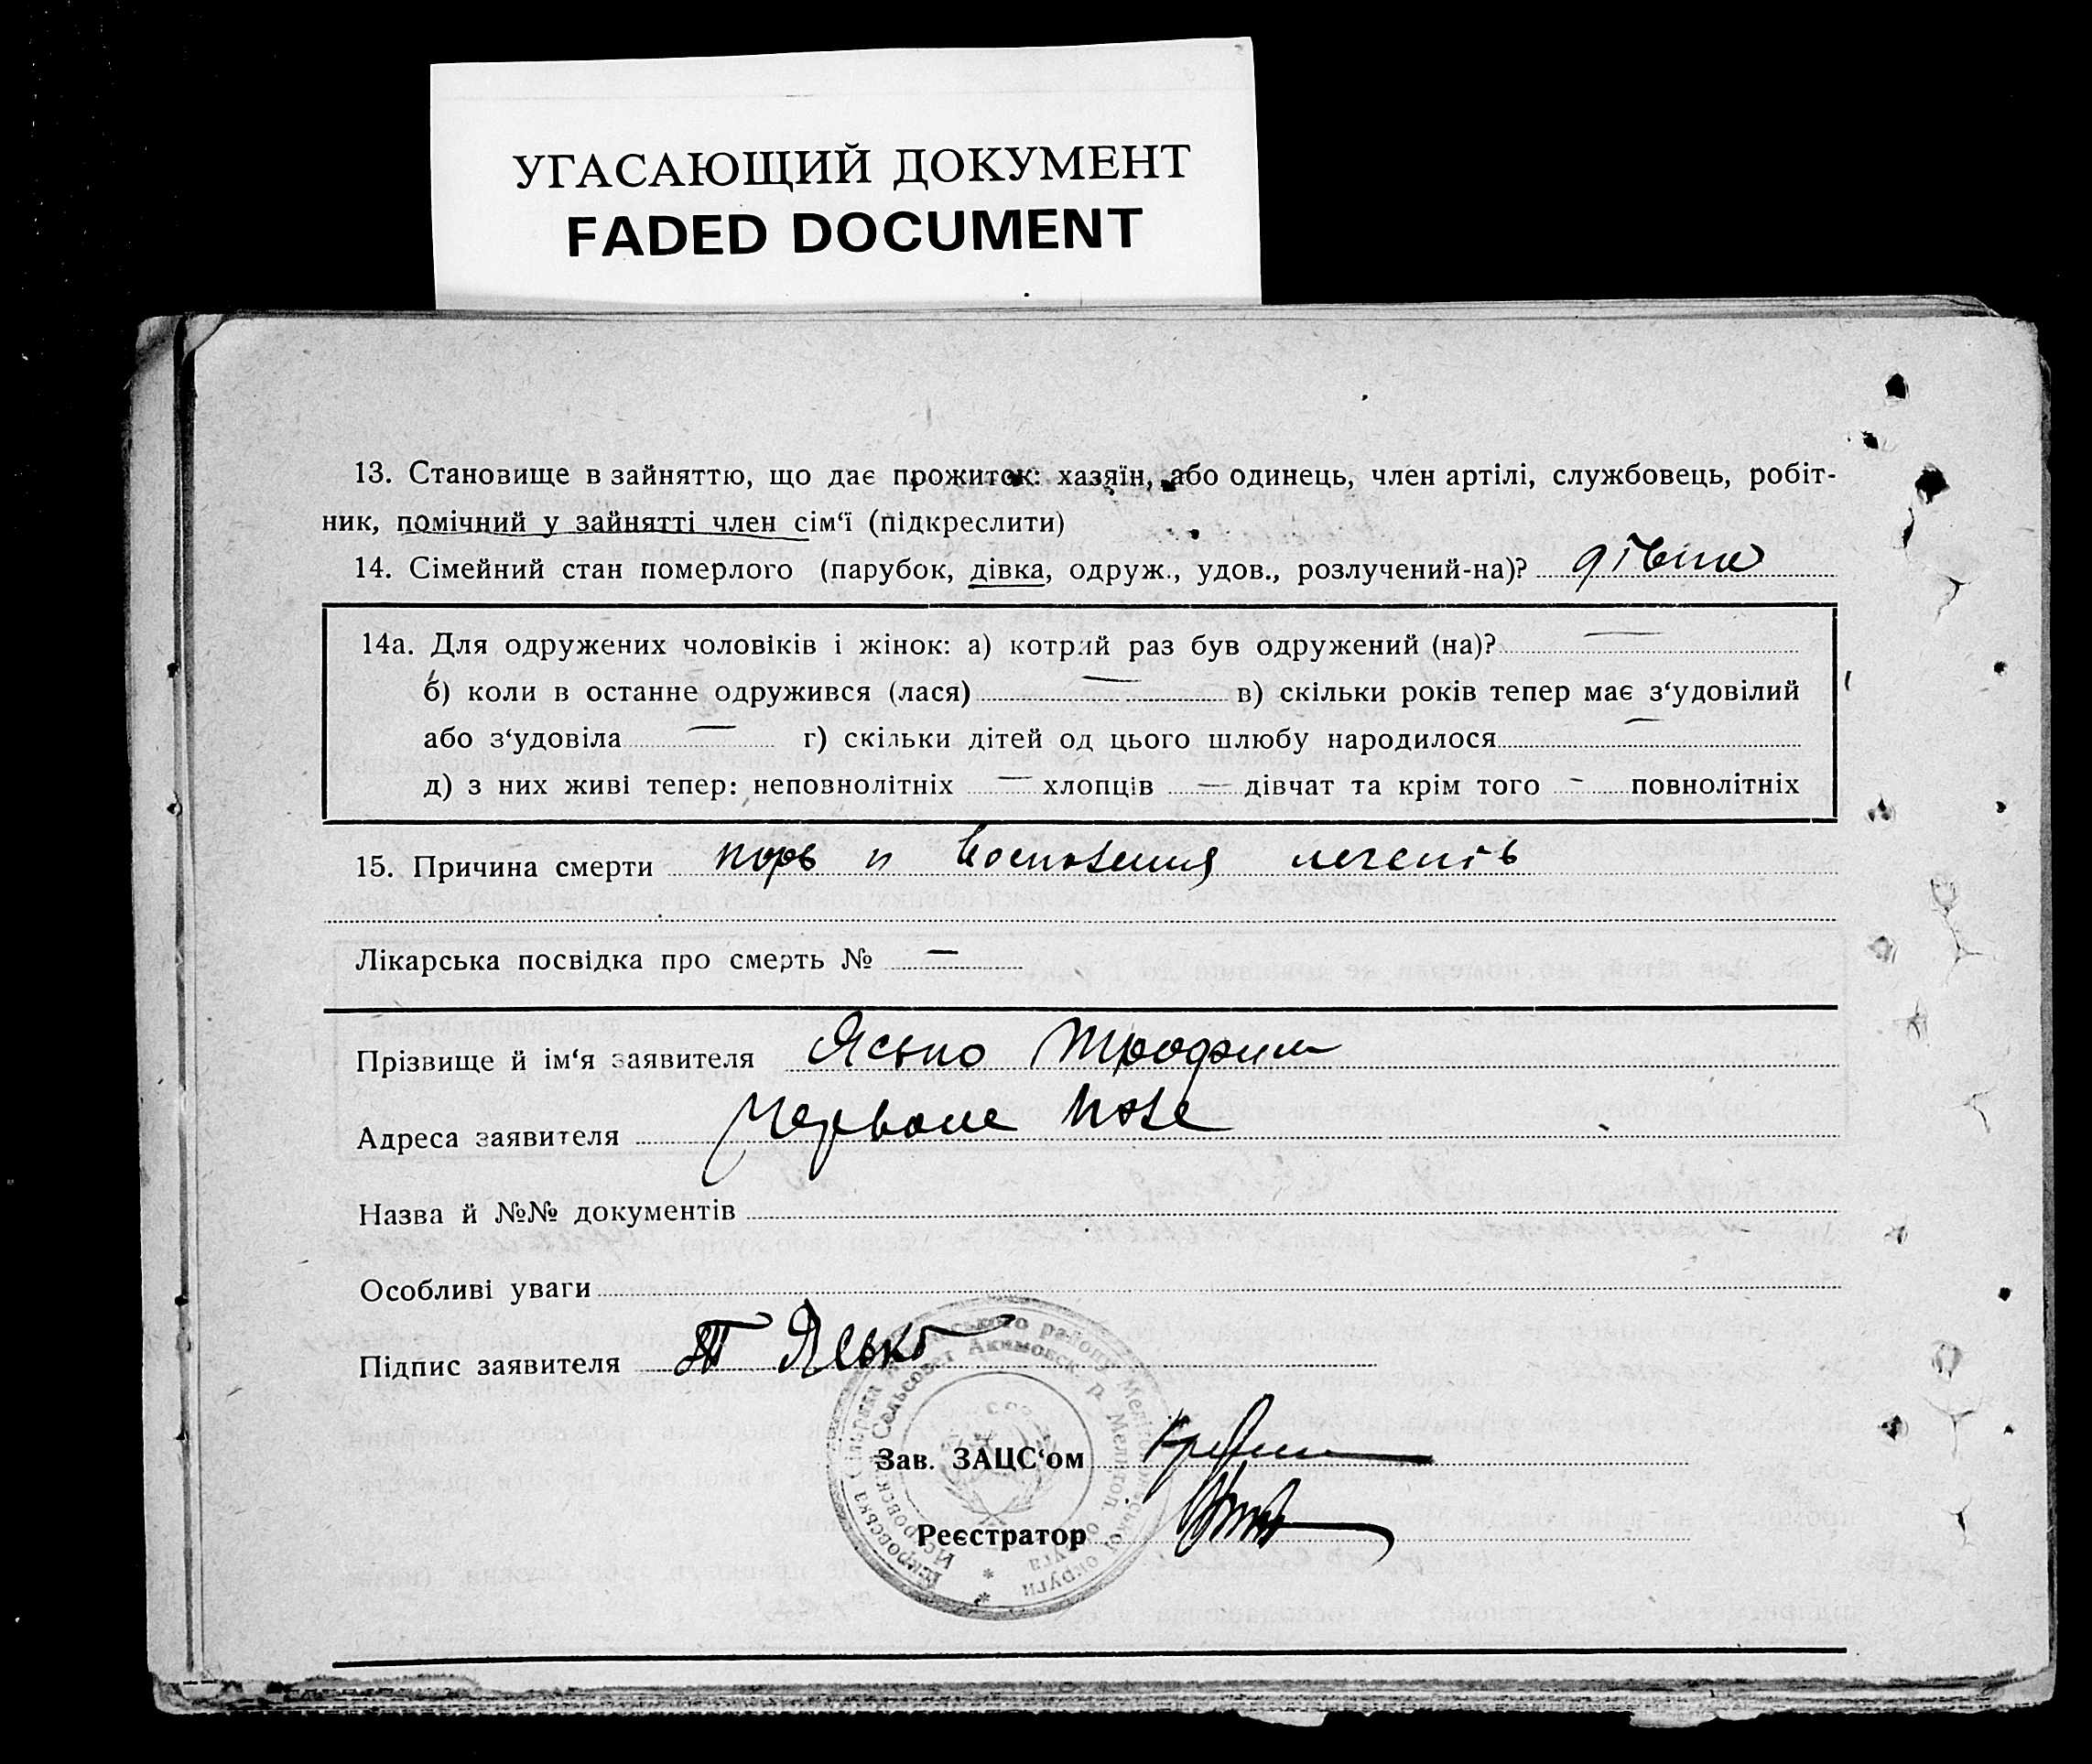 УГАСАЮЩИЙ ДОКУМЕНТ
FADED DOCUMENT
13. Становище в зайняттю, що дає прожиток: хазяїн, або одинець, член артілі, службовець, робіт-
ник, помічний у зайнятті член сім‘ї (підкреслити)
14. Сімейний стан померлого (парубок, дівка, одруж., удов., розлучений-на)? дівка
14а. Для одружених чоловіків і жінок: а) котрий раз був одружений (на)? —
б) коли в останне одружився (лася) — в) скільки років тепер має з‘удовілий
або з‘удовіла — г) скільки дітей од цього шлюбу народилося —
д) з них живі тепер: неповнолітніх — хлопців — дівчат та крім того - повнолітніх
15. Причина смерти легенів
Лікарська посвідка про смерть № —
Прізвище й ім‘я заявителя Ясько Трофим
Адреса заявителя Червоне Поле
Назва й №№ документів
Особливі уваги
Підпис заявителя Т Ясько
Зав. ЗАЦС‘ом
Реєстратор
ського району Мелітопольської округи
Сельсовет Акимовск. р. Мелитоп. округа